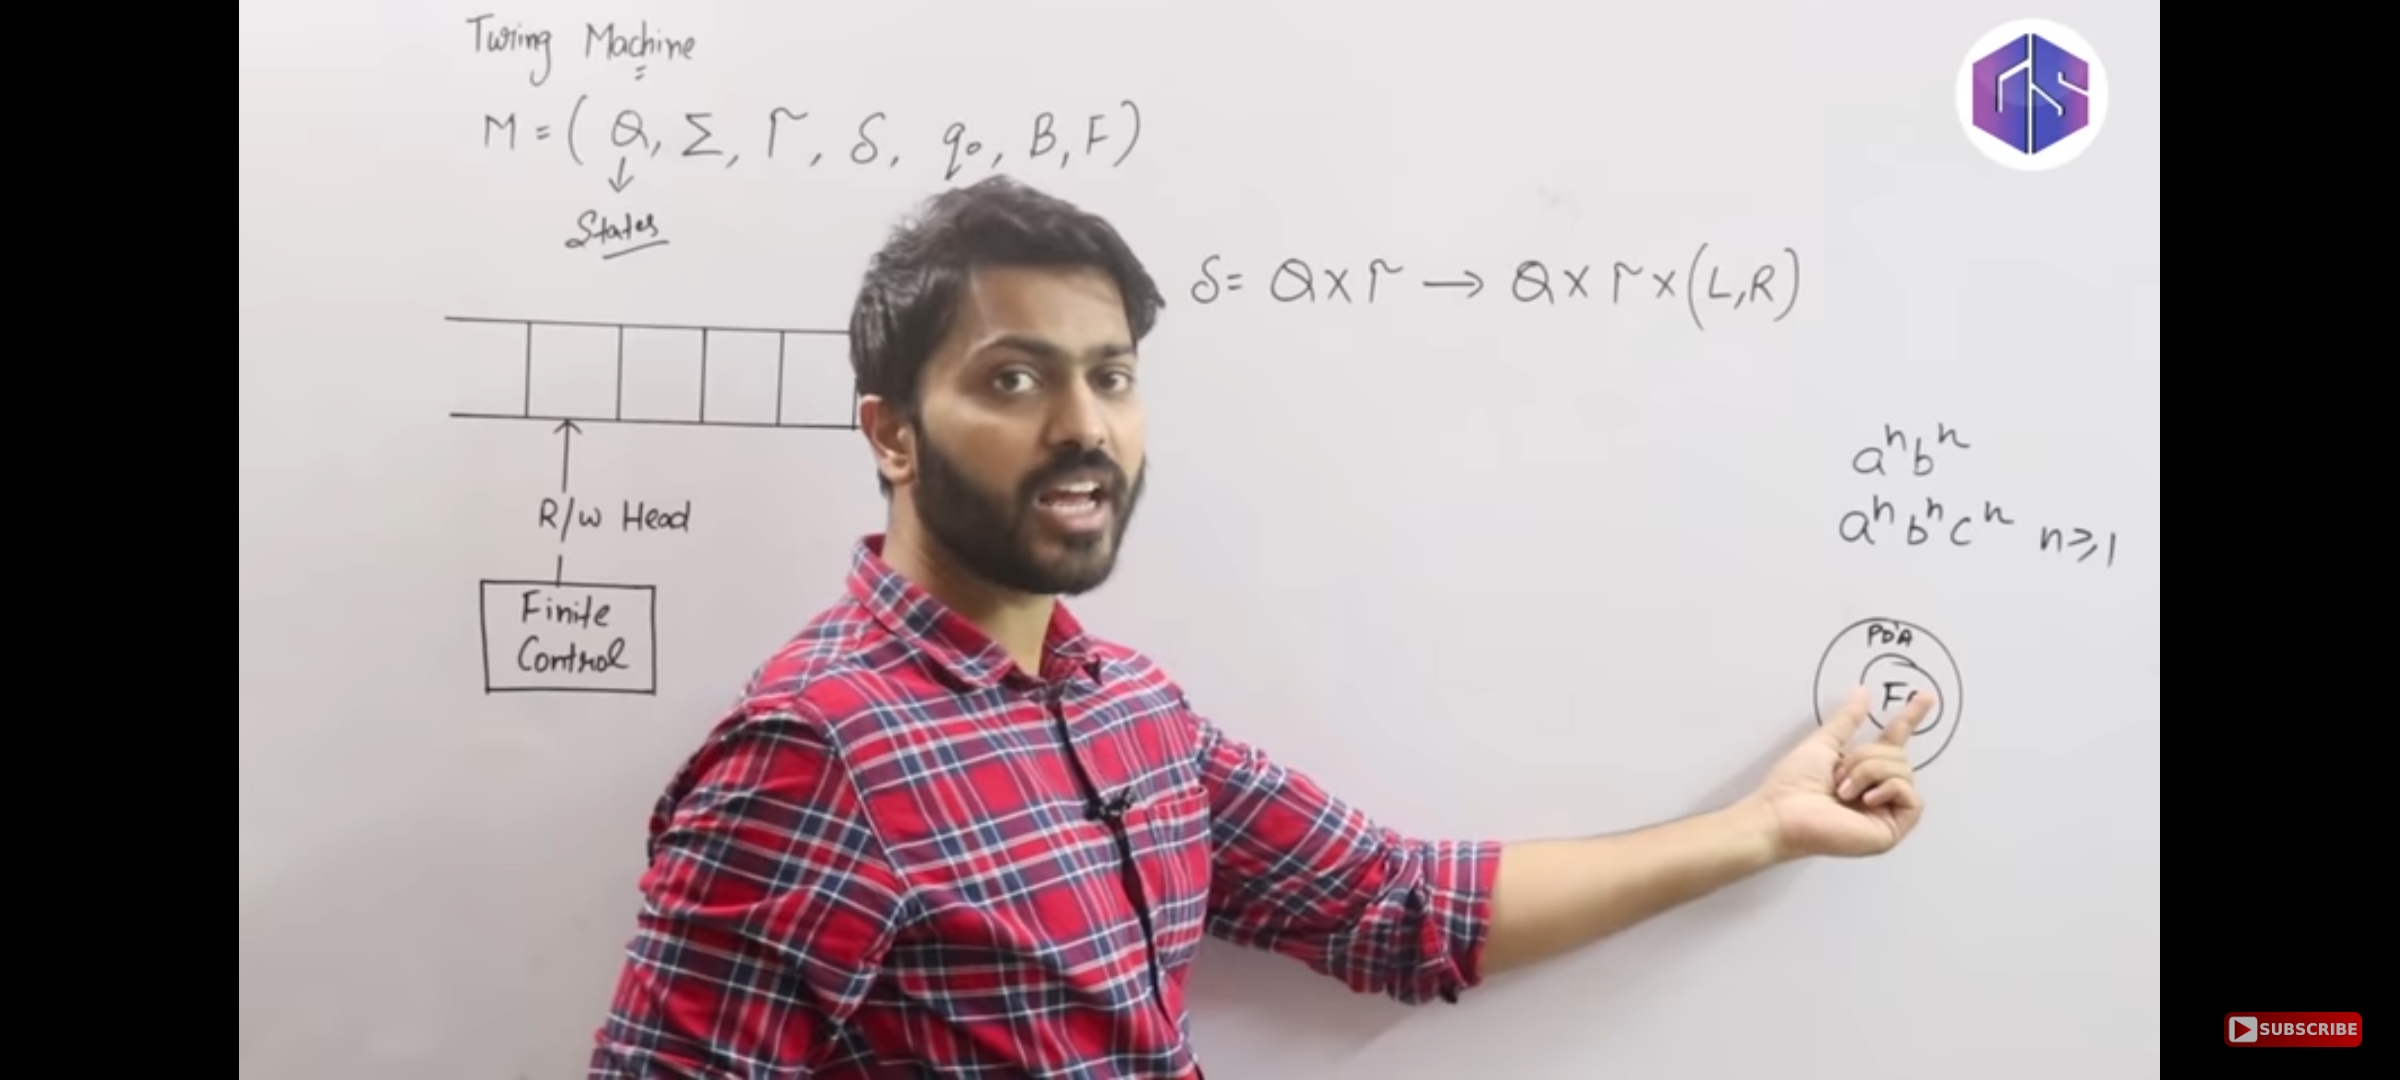 Turing Machine
M = ( Q, Σ, Γ, δ, q₀, B, F )
States
δ = Q × Γ → Q × Γ × (L,R)
R/W Head
Finite
Control
aⁿbⁿ
aⁿbⁿcⁿ n≥1
PDA
GS
SUBSCRIBE